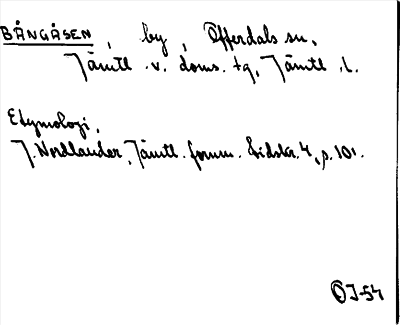 BÅNGÅSEN, by, Offerdals sn,
Jämtl. v. doms. tg, Jämtl. l.
Etymologi,
J. Nordlander, Jämtl. fornm. tidskr. 4, s. 101.
OJ-54